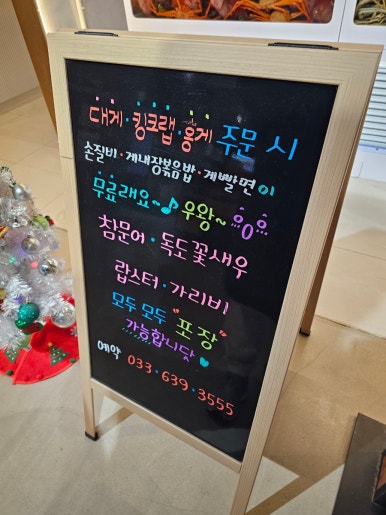 대게·킹크랩·홍게 주문 시
손질비·게내장볶음밥·게빨면이
무료래요~♪ 우왕~ ㅎ0ㅎ
참문어·독도꽃새우
랍스터·가리비
모두 모두 "포장"
가능합니닷
예약 033·639·3555